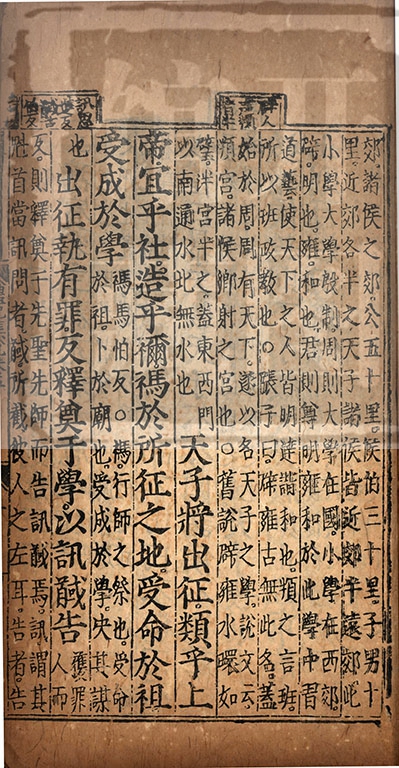 郊。諸侯之郊。公五十里。侯伯三十里。子男十
里。近郊各半之。天子諸侯皆近郊半遠郊。此
小學大學殷制。周則大學在國。小學在西郊。
辟。明也。雍。和也。君則尊明雍和於此學中習
道藝。使天下之人皆明達諧和也。頖之言班。
所以班政教也。○張子曰。辟雍古無此名。蓋
始於周。周有天下。遂以名天子之學。說文云。
頖宮。諸侯鄉射之宮也。○舊說辟雍水環如
璧。泮宮半之。蓋東西門
以南通水。北無水也
天子將出征。類乎上
帝。宜乎社。造乎禰。禡於所征之地。受命於祖。
受成於學
禡。馬怕反。○禡。行師之祭也。受命
於祖。卜於廟也。受成於學。决其謀
也
出征執有罪。反釋奠于學。以訊馘告
獲罪
人而
反。則釋奠于先聖先師。而告訊馘焉。訊。謂其
魁首當訊問者。馘。所截彼人之左耳。告者。告